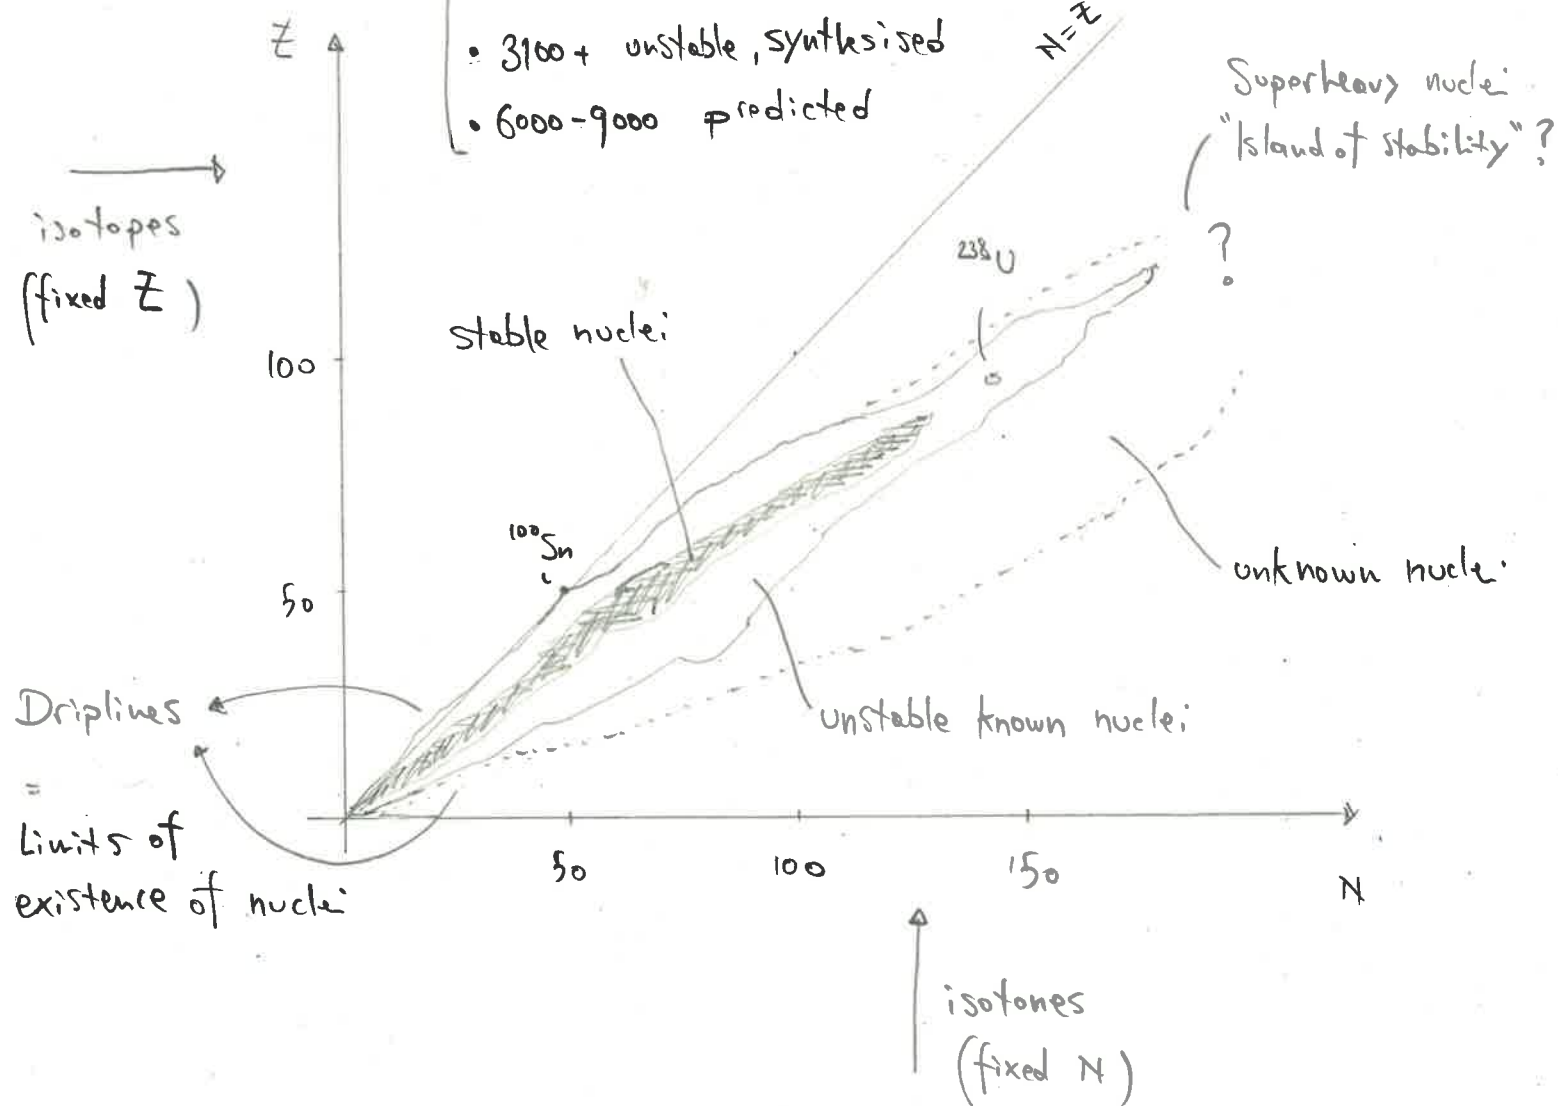 Z
• 3100+ unstable, synthesised
• 6000-9000 predicted
N=Z
Superheavy nuclei
"Island of stability"?
?
isotopes
(fixed Z)
238U
stable nuclei
100
100Sn
50
unknown nuclei
Driplines
=
Limits of
existence of nuclei
unstable known nuclei
50
100
150
N
isotones
(fixed N)